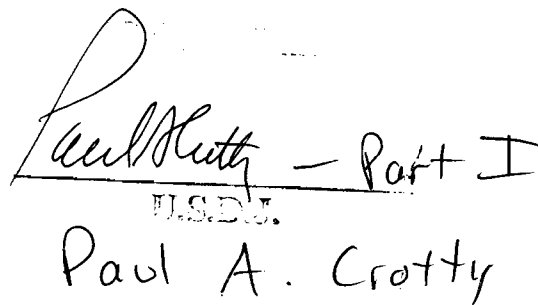 Paul A Crotty – Part I
U.S.D.J.
Paul A. Crotty